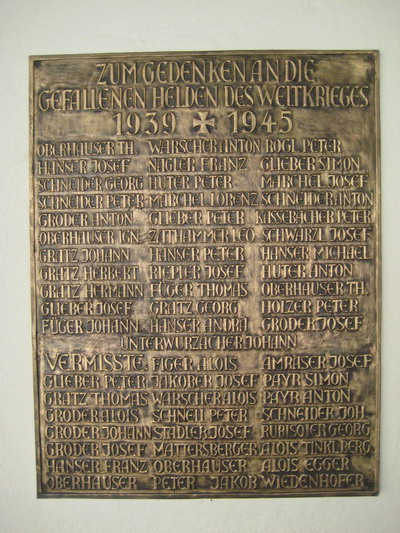 ZUM GEDENKEN AN DIE
GEFALLENEN HELDEN DES WELTKRIEGES
1939 ✠ 1945
OBERHAUSER TH. WARSCHER ANTON ROGL PETER
HANSER JOSEF NAGLER FRANZ GLIEBER SIMON
SCHNEIDER GEORG HUTER PETER MAIRCHEL JOSEF
SCHNEIDER PETER MAIRCHEL LORENZ SCHNEIDER ANTON
GRODER ANTON GLIEBER PETER KASSEBACHER PETER
OBERHAUSER IGN. ZATHAMMER LEO SCHWARZL JOSEF
GRATZ JOHANN HANSER PETER HANSER MICHAEL
GRATZ HERBERT RIEPLER JOSEF HUTER ANTON
GRATZ HERMANN FÜGER THOMAS OBERHAUSER TH.
GLIEBER JOSEF GRATZ GEORG HOLZER PETER
FÜGER JOHANN HANSER ANDRÄ GRODER JOSEF
UNTERWURZACHER JOHANN
VERMISSTE: FIGER ALOIS AMRASER JOSEF
GLIEBER PETER JAKOBER JOSEF PAYR SIMON
GRATZ THOMAS WARSCHER ALOIS PAYR ANTON
GRODER ALOIS SCHNELL PETER SCHNEIDER JOH.
GRODER JOHANN STADLER JOSEF RUBISOIER GEORG
GRODER JOSEF MATTERSBERGER ALOIS TINKLBERG
HANSER FRANZ OBERHAUSER ALOIS EGGER
OBERHAUSER PETER JAKOB WIEDENHOFER